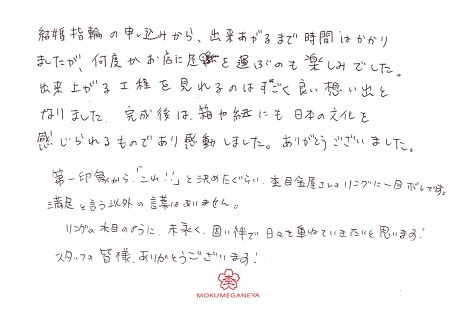 結婚指輪の申し込みから、出来あがるまで時間はかかり
ましたが、何度かお店に足を運ぶのも楽しみでした。
出来上がる工程を見れるのはすごく良い想い出と
なりました。完成後は、箱や紙にも日本の文化を
感じられるものであり感動しました。ありがとうございました。
第一印象から、「これ!!」と決めたぐらい、杢目金屋さんのリングに一目ボレです。
満足と言う以外の言葉はありません。
リングの木目のように、末永く、固い絆で日々を重ねていきたいと思います!
スタッフの皆様、ありがとうございます!
MOKUMEGANEYA